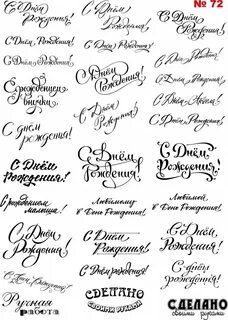 № 72
С Днём
Рождения!
С Днем
Рождения!
С Днём
Рождения!
С Днем Рождения!
С Днём
Рождения!
С Днём Рождения!
С Днем Рождения!
С Днём
Рождения!
С рождением
внучки
С Днём
Рождения!
С Днём
Рождения!
С днем
рождения!
С Днём Рождения!
С Днём
Рождения!
С Днём
Рождения!
С Днём
Рождения!
С рождением
малыша!
Любимой
в День Рождения!
Любимому
в День Рождения!
С Днём
Рождения!
С Днём
Рождения!
С Днём
Рождения!
С Днём Рождения!
С Днём рождения!
С днём
рождения!
Ручная
работа
СДЕЛАНО
СВОИМИ РУКАМИ
СДЕЛАНО
своими руками